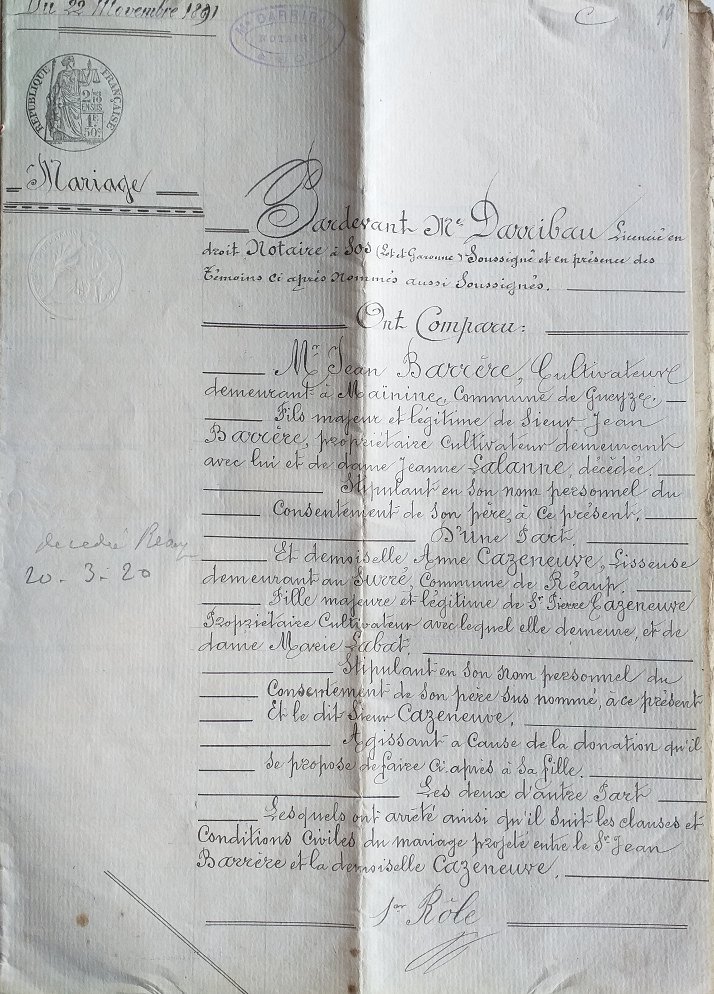 Du 22 Novembre 1891
Me DARRIBAU
NOTAIRE
C
19
RÉPUBLIQUE FRANÇAISE
2/10
EN SUS
1F
50c
Mariage
Pardevant Me Darribau Licencié en
droit Notaire à Sos (Lot et Garonne) Soussigné et en présence des
Témoins ci après Nommés aussi Soussignés.
Ont Comparu:
Mr Jean Barrère, Cultivateur
demeurant à Maïnine, Commune de Gueyze.
Fils majeur et légitime de Sieur Jean
Barrère, propriétaire Cultivateur demeurant
avec lui et de dame Jeanne Lalanne, décédée.
Stipulant en Son nom personnel du
Consentement de Son père, à ce présent.
D'Une Part.
Et demoiselle Anne Cazeneuve, Lisseuse
demeurant au Surré, Commune de Réaup.
Fille majeure et légitime de Sr Pierre Cazeneuve
Propriétaire Cultivateur avec lequel elle demeure, et de
dame Marie Labat.
Stipulant en Son nom personnel du
Consentement de Son père Sus nommé, à ce présent
Et le dit Sieur Cazeneuve.
Agissant a Cause de la donation qu'il
Se propose de faire Ci après à Sa fille.
Les deux d'autre Part
Lesquels ont arrêté ainsi qu'il Suit les clauses et
Conditions Civiles du mariage projeté entre le Sr Jean
Barrère et la demoiselle Cazeneuve.
1er Rôle
decedé
20-3-20